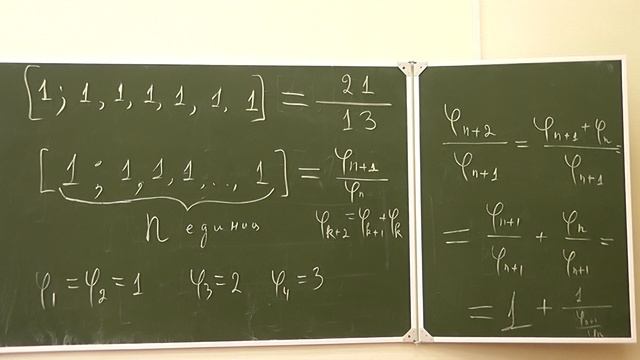 [1; 1, 1, 1, 1, 1, 1] = 21/13
[1; 1, 1, 1, ..., 1] = φn+1/φn
n единиц
φk+2 = φk+1 + φk
φ1 = φ2 = 1 φ3 = 2 φ4 = 3
φn+2/φn+1 = φn+1 + φn/φn+1 =
= φn+1/φn+1 + φn/φn+1 =
= 1 + 1/φn+1/φn